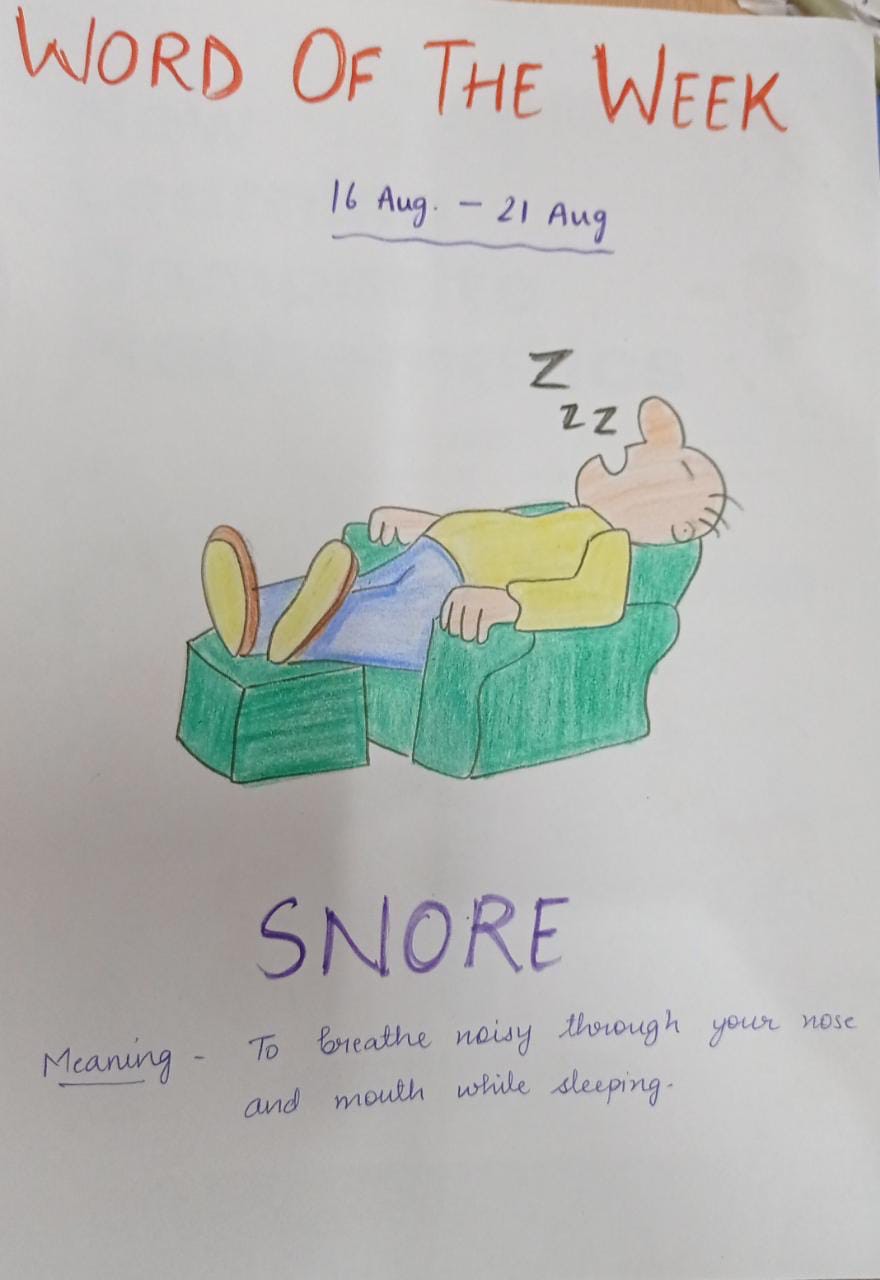 WORD OF THE WEEK
16 Aug. - 21 Aug
Z
z z
SNORE
Meaning - To breathe noisy through your nose
and mouth while sleeping.